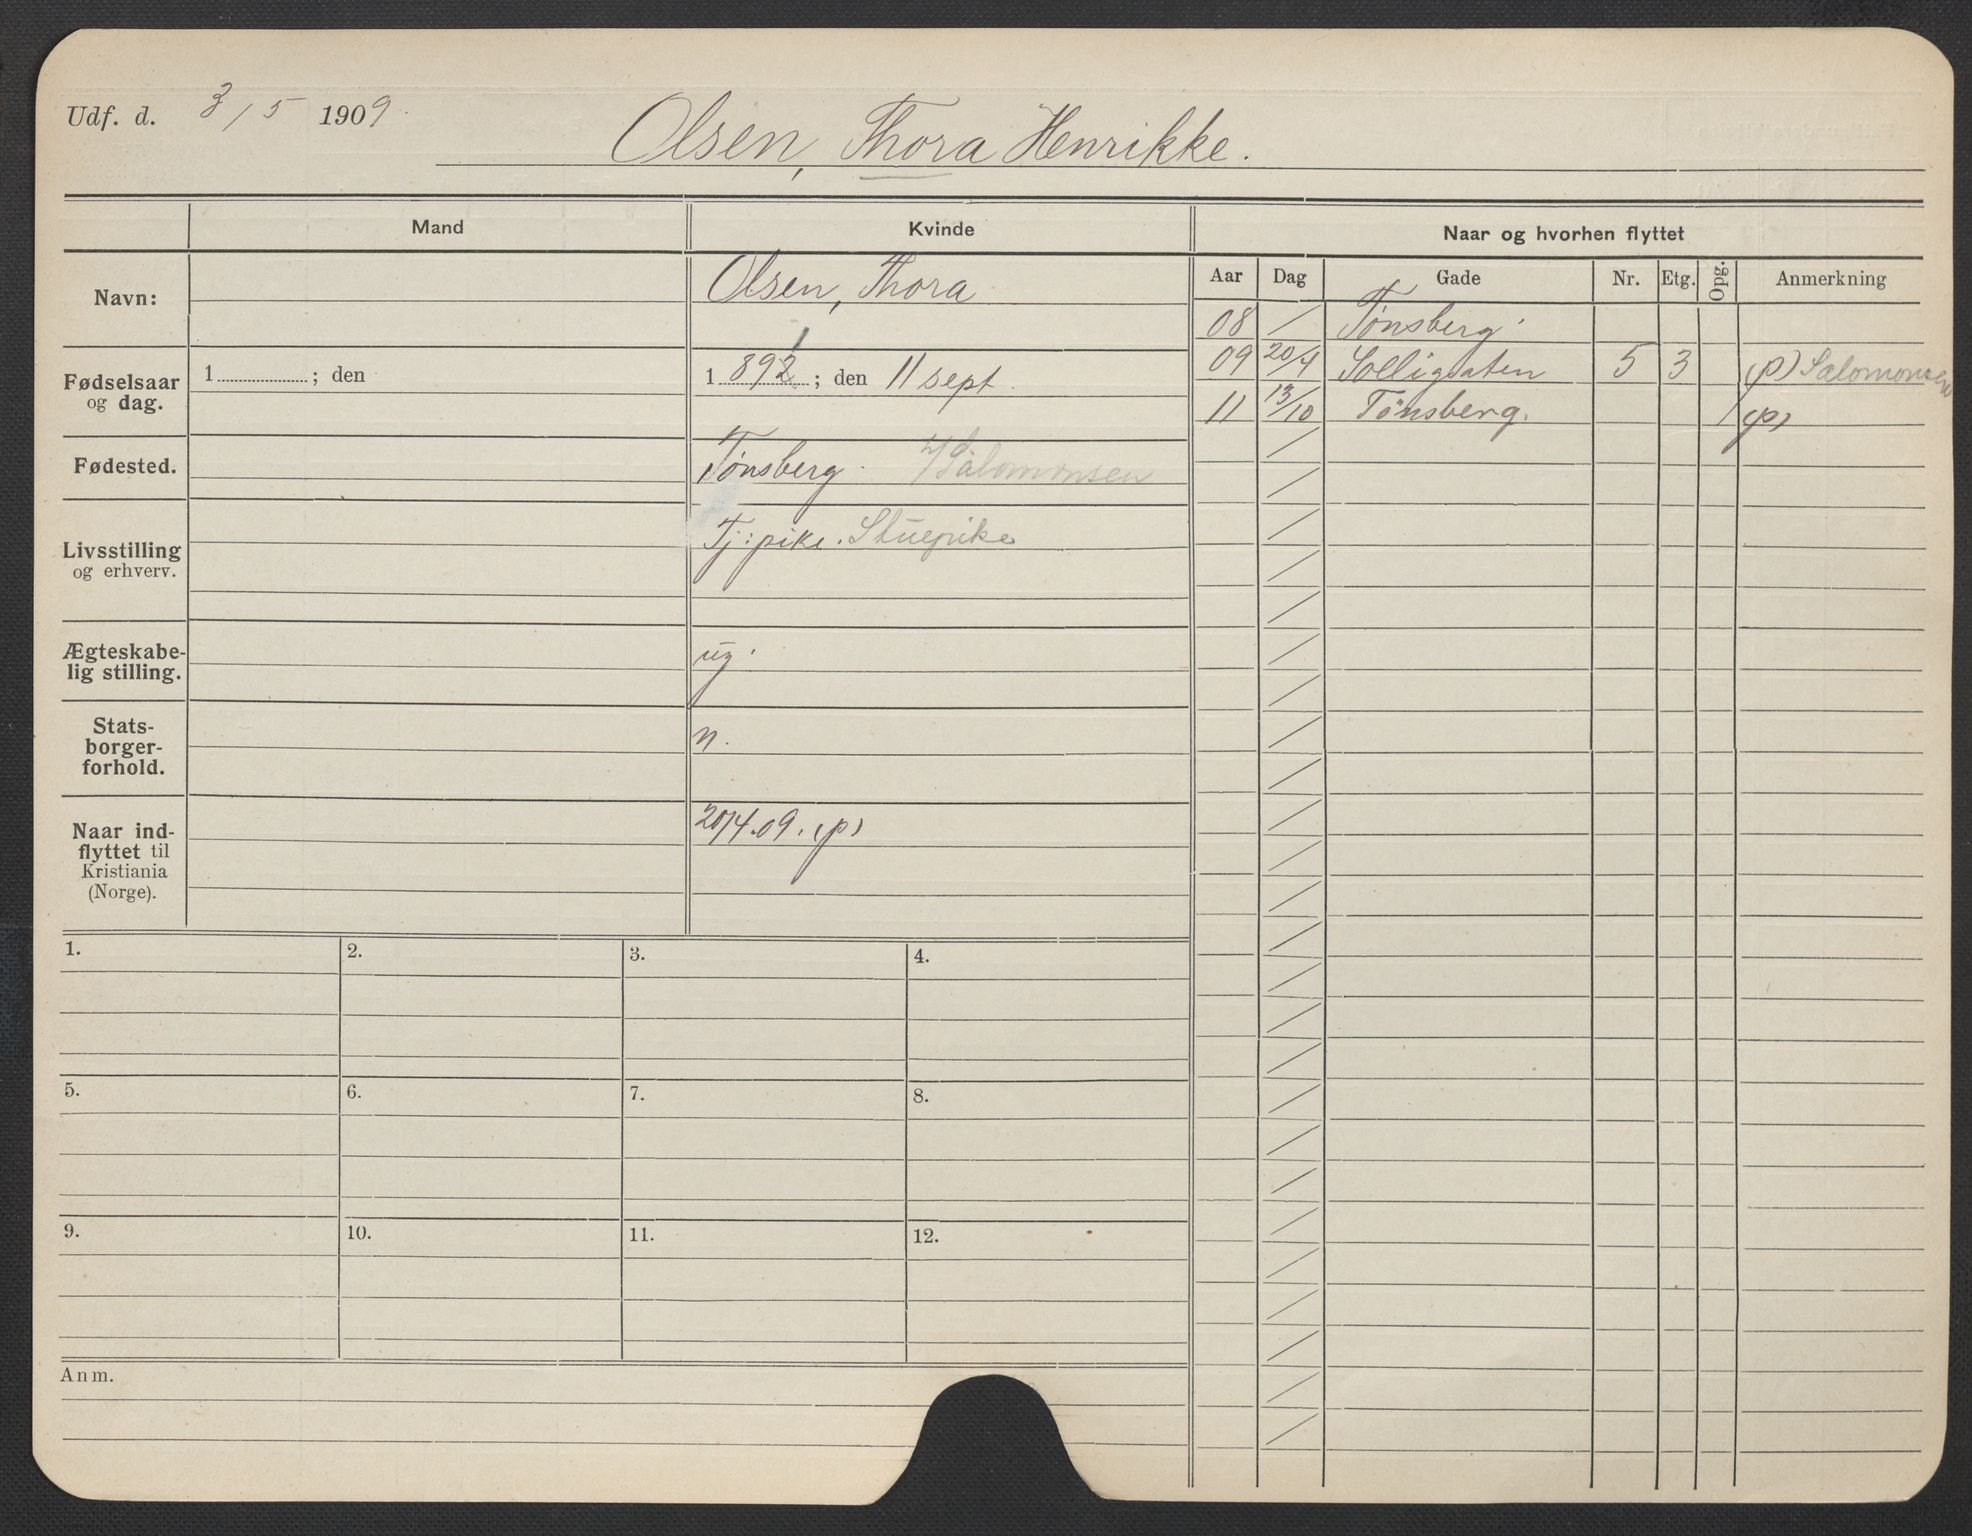 Udf. d. 3/5 1909.
Olsen, Thora Henrikke.
Mand
Kvinde
Naar og hvorhen flyttet
Aar Dag Gade Nr. Etg. Opg. Anmerkning
Navn:
Olsen, Thora
08 / Tönsberg.
09 20/4 Solligaten 5 3 (p) Salomonsen
11 13/10 Tönsberg. (p)
Fødselsaar
og dag.
1 ; den
1 892 ; den 11 sept.
Fødested.
Tönsberg. Salomonsen
Livsstilling
og erhverv.
Tj: pike. Stuepike
Ægteskabe-
lig stilling.
ug.
Stats-
borger-
forhold.
n.
Naar ind-
flyttet til
Kristiania
(Norge).
20/4.09. (p)
1. 2. 3. 4.
5. 6. 7. 8.
9. 10. 11. 12.
Anm.